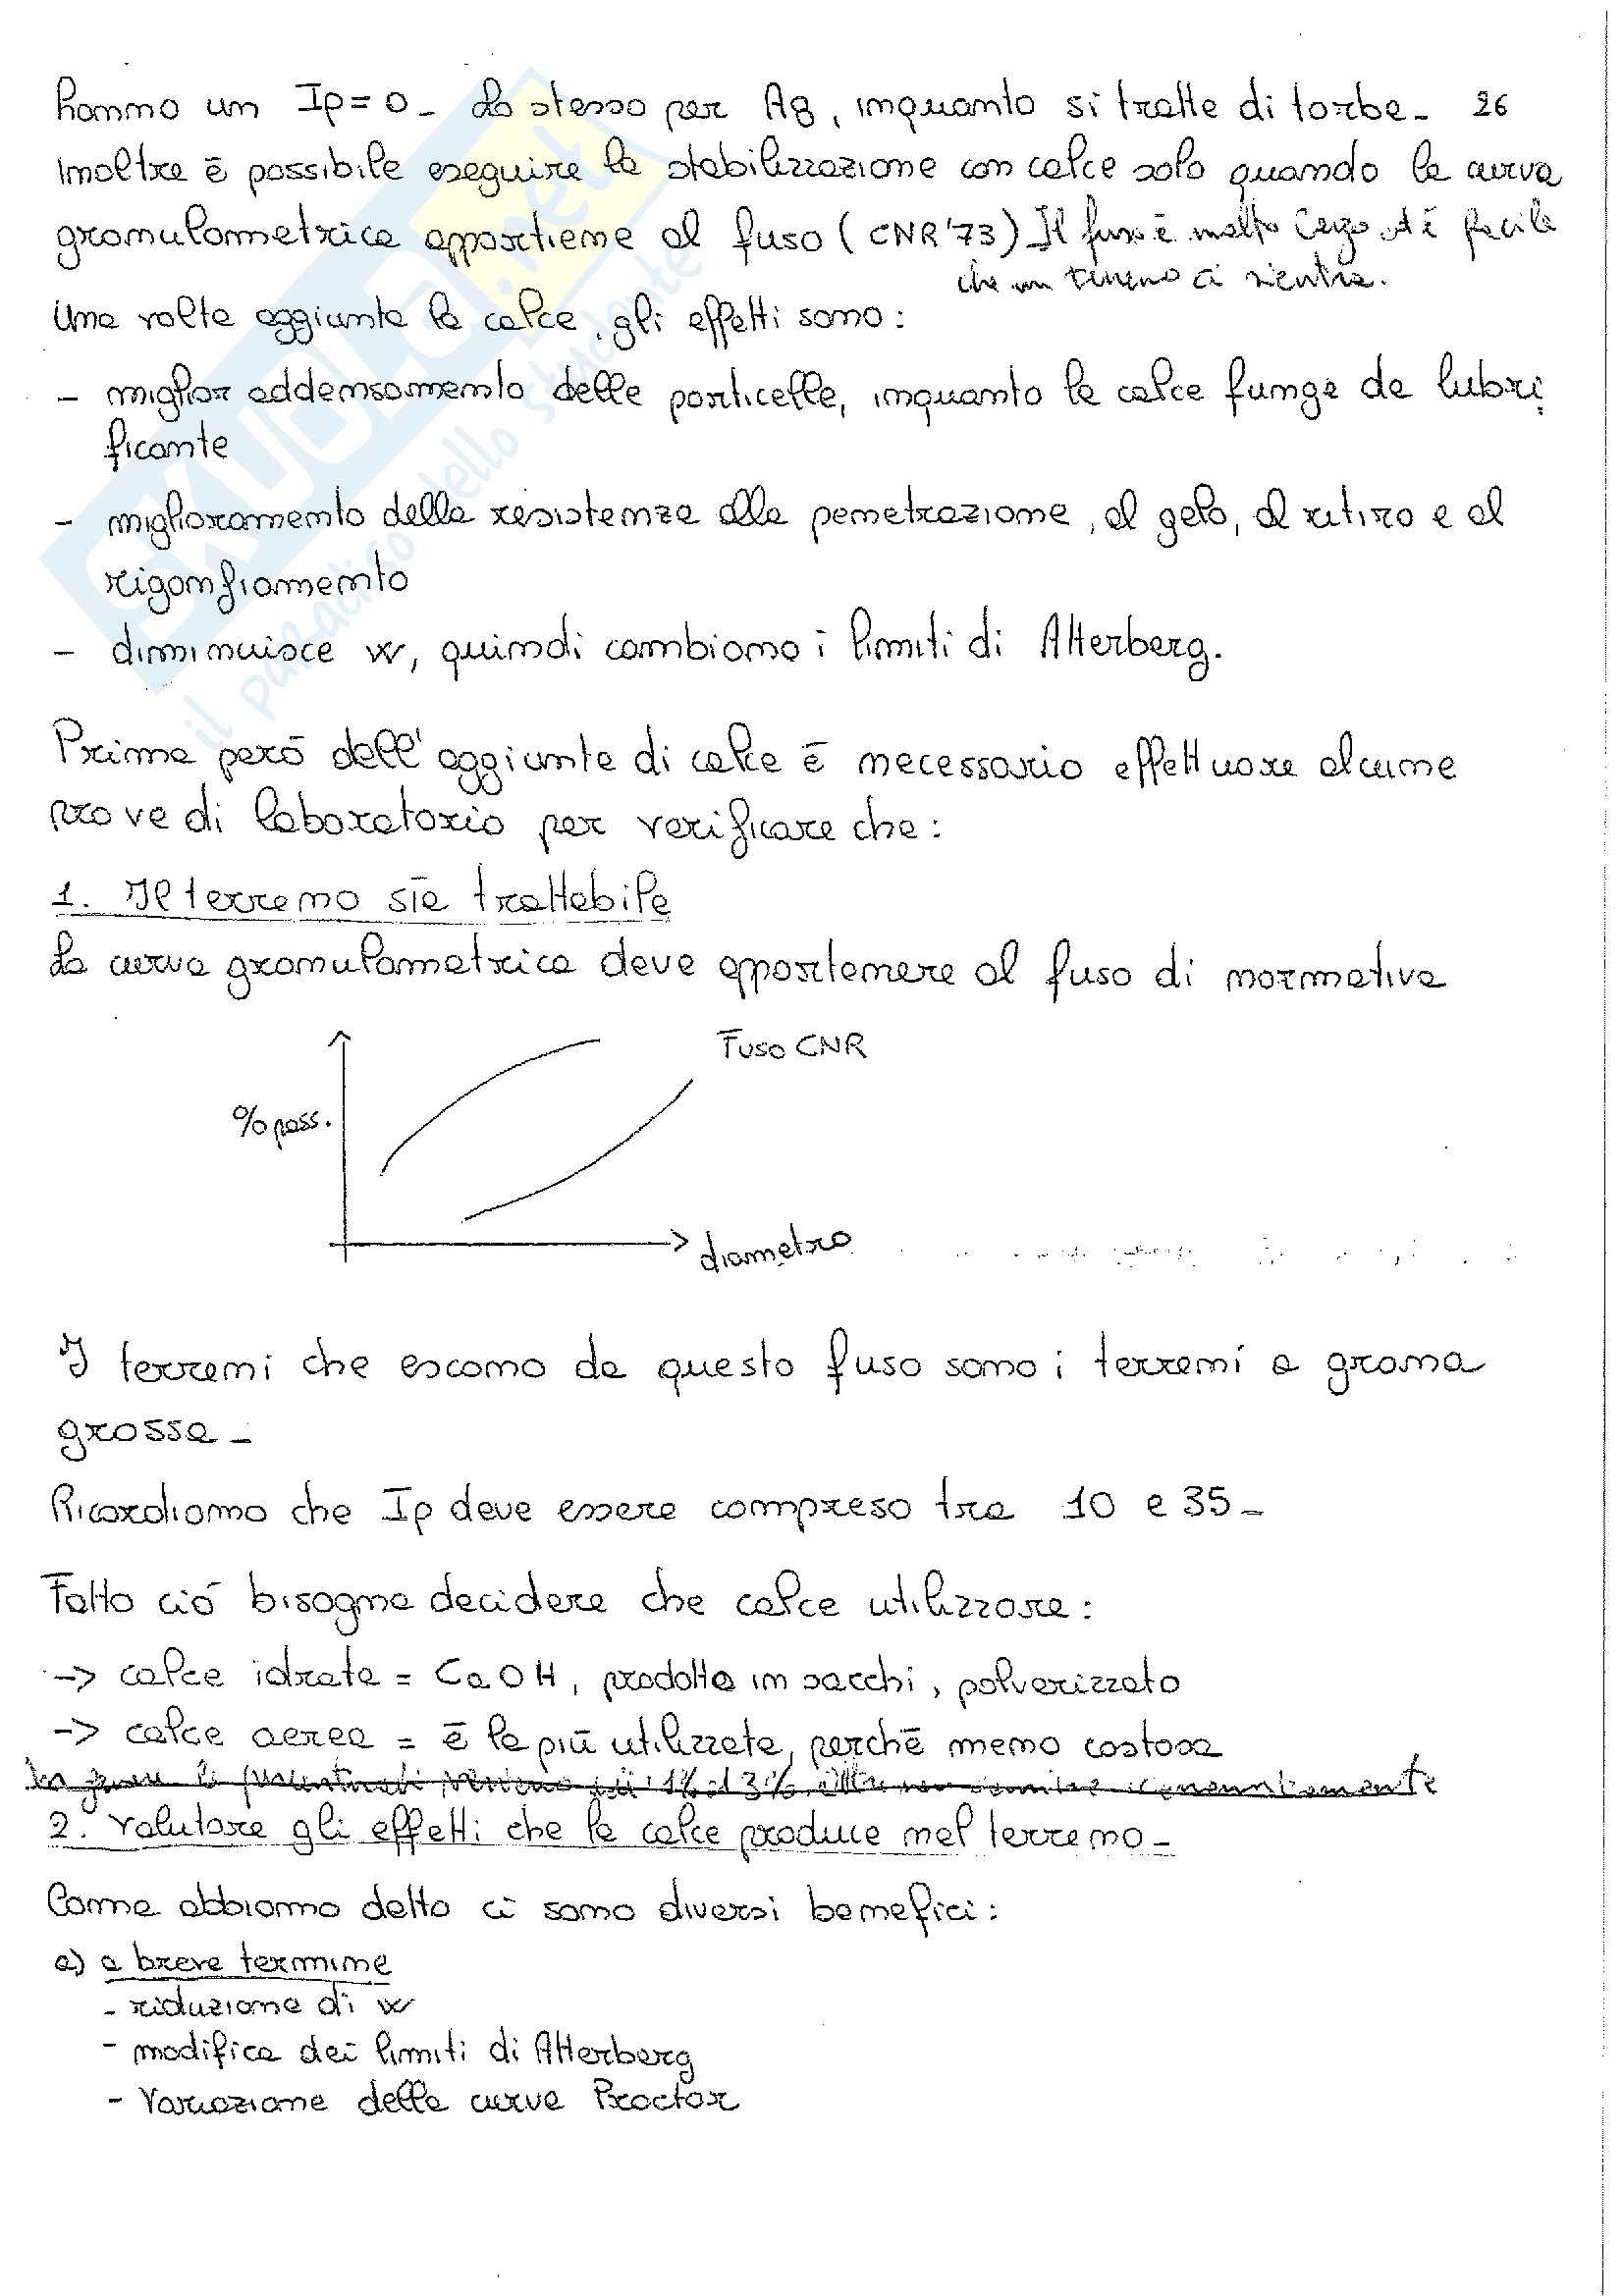 hanno un Ip=0_ Lo stesso per A8, inquanto si tratta di torbe_ 26
Inoltre è possibile eseguire la stabilizzazione con calce solo quando la curva
granulometrica appartiene al fuso (CNR'73) Il fuso è molto largo ed è facile
che un terreno ci rientra.
Una volta aggiunta la calce, gli effetti sono:
- miglior addensamento delle particelle, inquanto la calce funge da lubri
ficante
- miglioramento della resistenza alla penetrazione, al gelo, al ritiro e al
rigonfiamento
- diminuisce w, quindi cambiano i limiti di Atterberg.
Prima però dell'aggiunta di calce è necessario effettuare alcune
prove di laboratorio per verificare che:
1. Il terreno sia trattabile
La curva granulometrica deve appartenere al fuso di normativa
Fuso CNR
% pass.
diametro
I terreni che escono da questo fuso sono i terreni a grana
grossa_
Ricordiamo che Ip deve essere compreso tra 10 e 35_
Fatto ciò bisogna decidere che calce utilizzare:
-> calce idrata = CaOH, prodotta in sacchi, polverizzato
-> calce aerea = è la più utilizzata, perchè meno costosa
2. Valutare gli effetti che la calce produce nel terreno_
Come abbiamo detto ci sono diversi benefici:
a) a breve termine
- riduzione di w
- modifica dei limiti di Atterberg
- Variazione della curva Proctor
SKUOLA.net
il paradiso dello studente